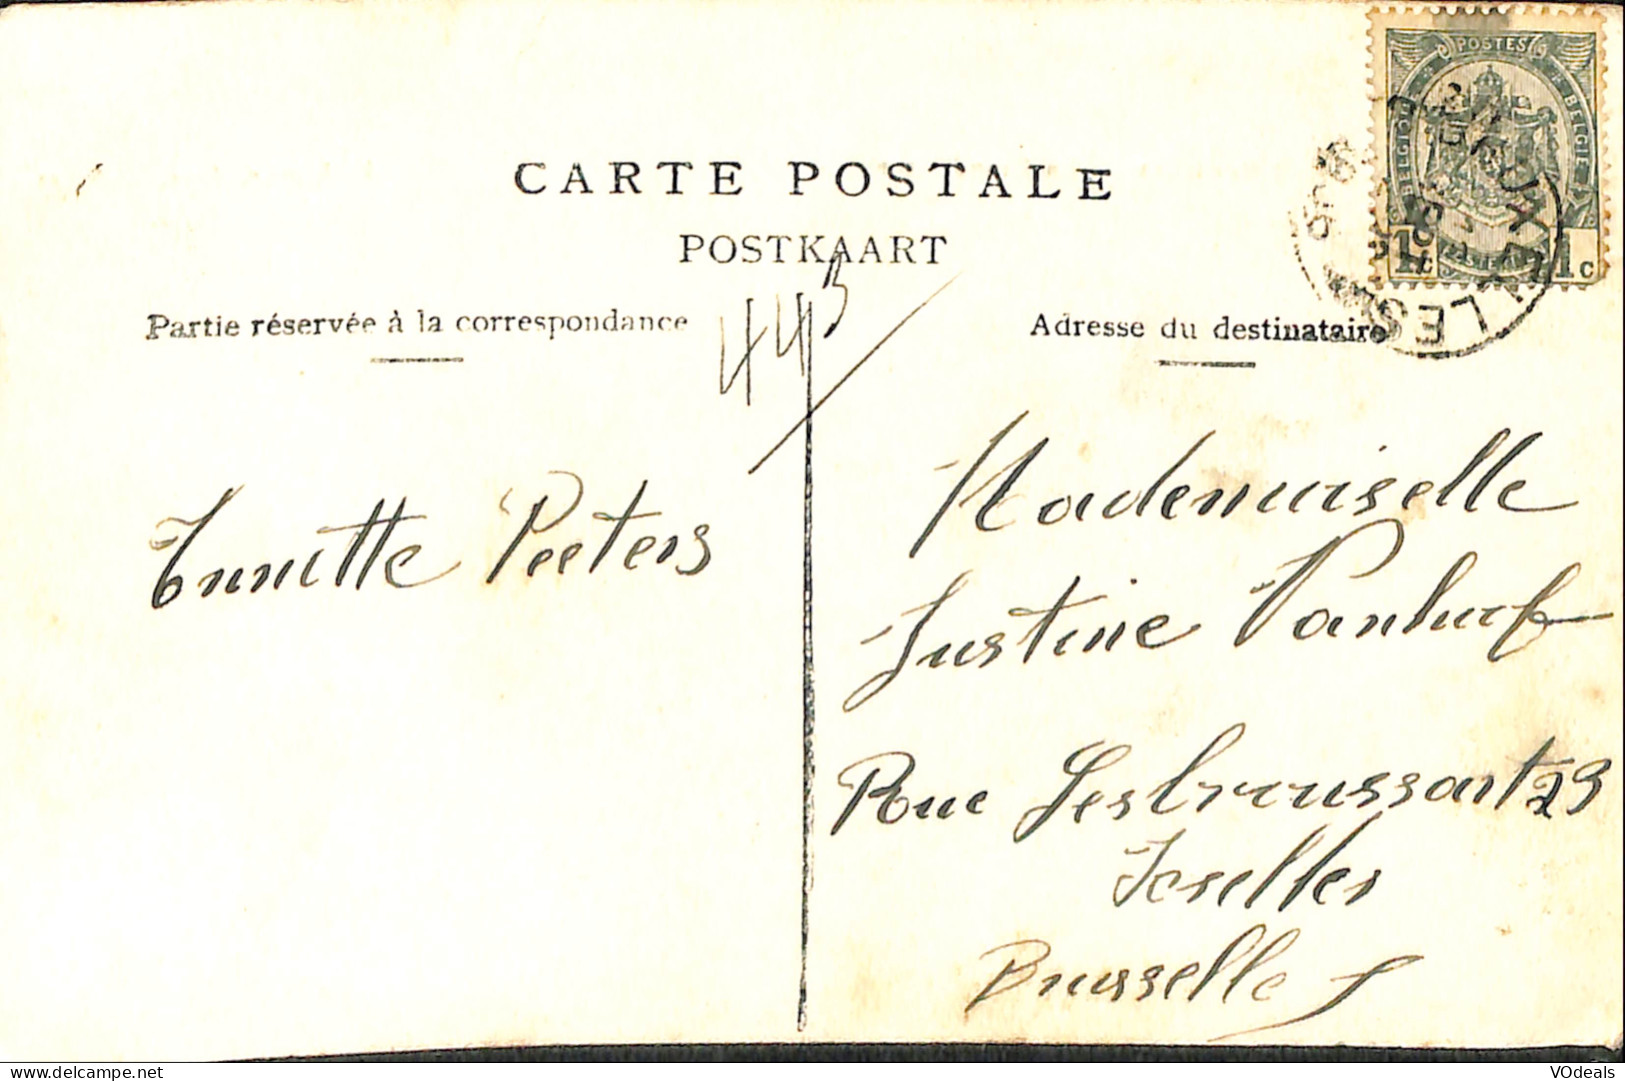 CARTE POSTALE
POSTKAART
Partie réservée à la correspondance
Adresse du destinataire
443
POSTES
BELGIQUE
BELGIE
1c
1c
Mademoiselle
Peeters
Justine
Rue Lesbroussart 23
Ixelles
Brusselles
delcampe.net
VOdeals